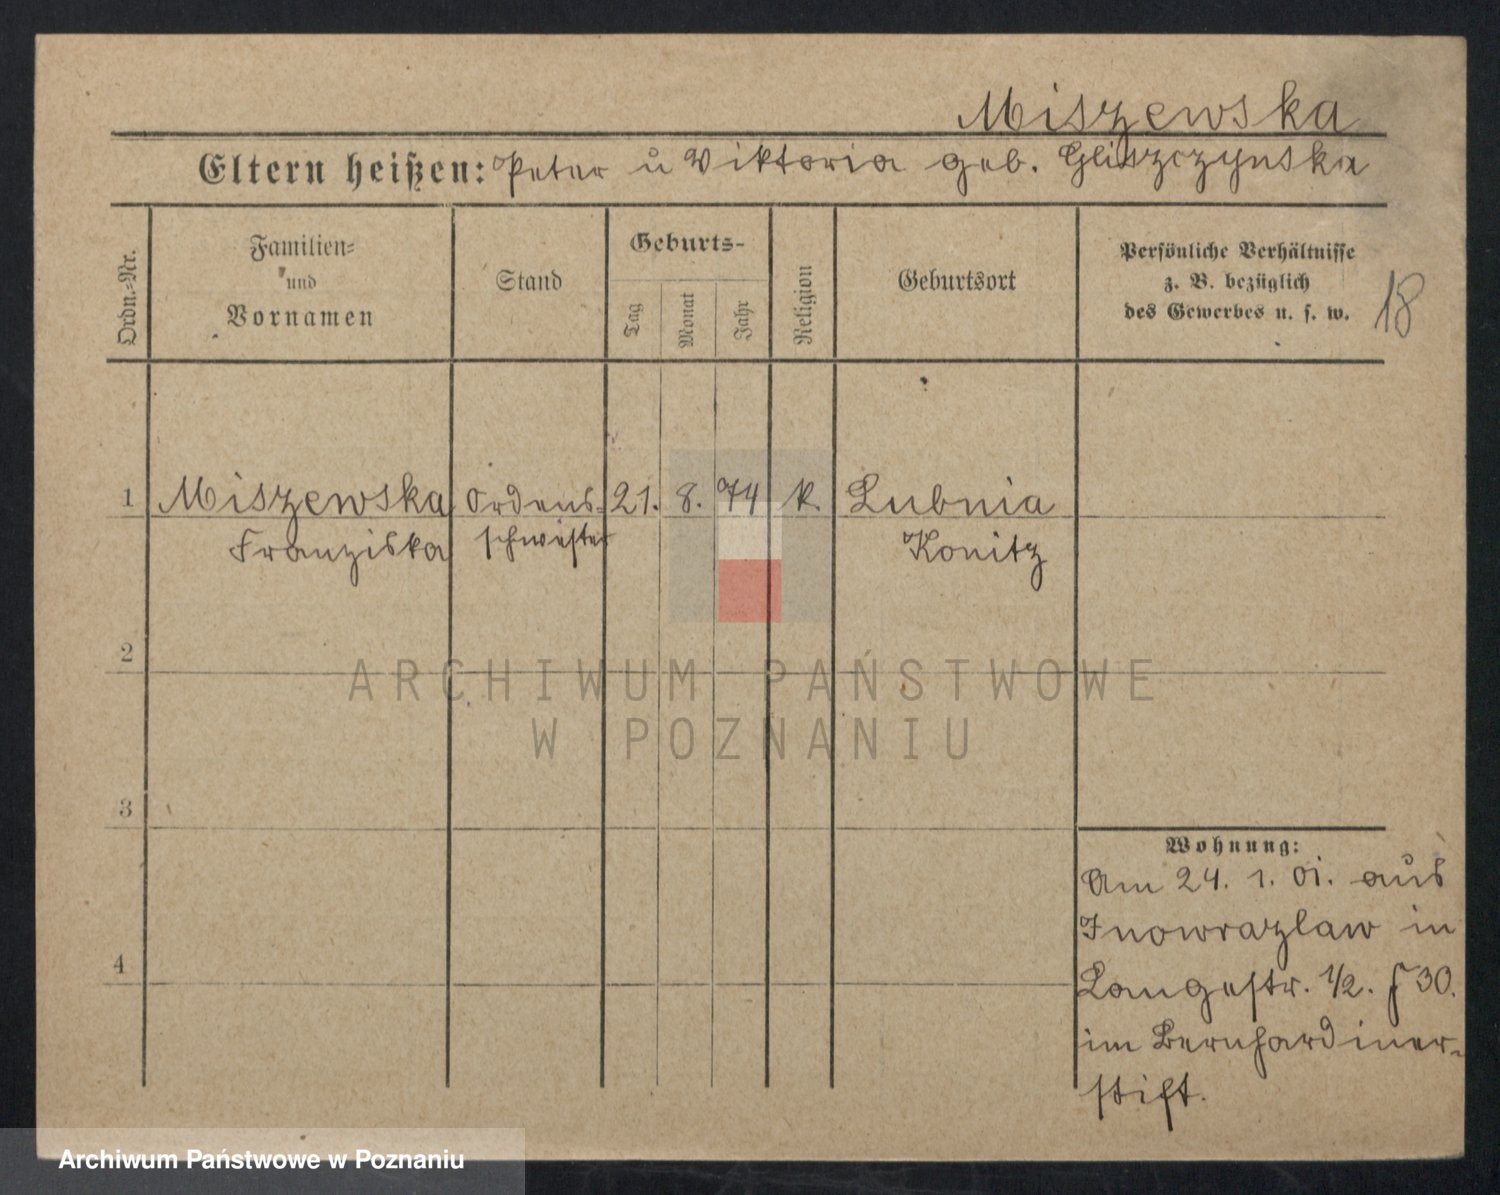 Miszewska
Eltern heißen: Peter u Viktoria geb. Gliszczynska
Ordn.-Nr.
Familien-
und
Vornamen
Stand
Geburts-
Tag
Monat
Jahr
Religion
Geburtsort
Persönliche Verhältnisse
z. B. bezüglich
des Gewerbes u. s. w.
18
1 Miszewska Ordens- 21. 8. 74 k. Lubnia
Franziska schwester Konitz
2
3
4
Wohnung:
Am 24. 1. 01. aus
Inowrazlaw in
Langestr. 1/2. f 30.
im Bernhardiner-
stift.
ARCHIWUM PAŃSTWOWE
W POZNANIU
Archiwum Państwowe w Poznaniu